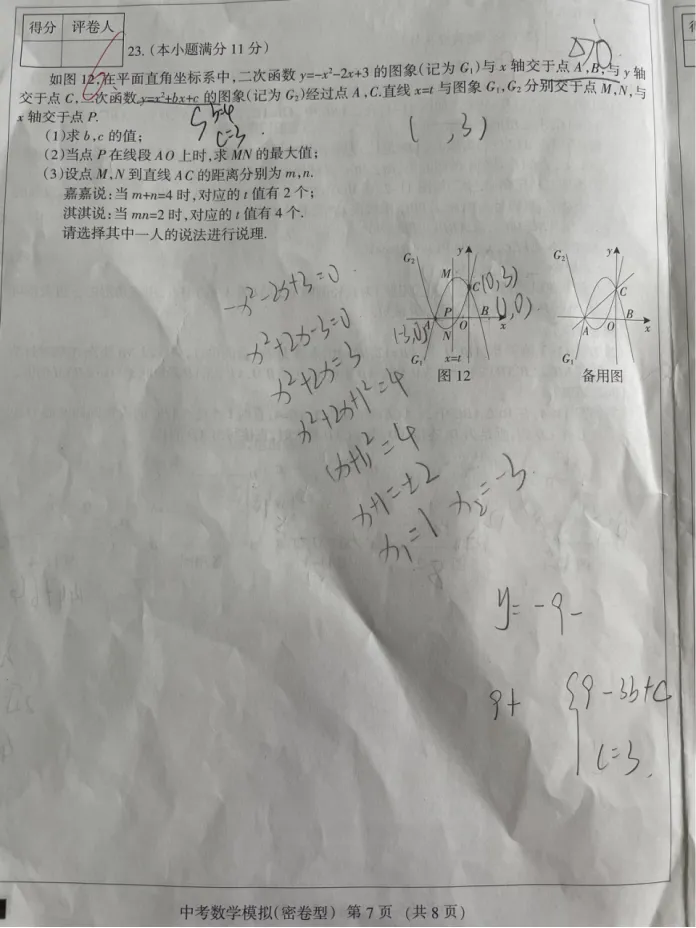 得分 评卷人
23.(本小题满分11分)
如图12,在平面直角坐标系中,二次函数y=-x²-2x+3的图象(记为G₁)与x轴交于点A,B,与y轴
交于点C,二次函数y=x²+bx+c的图象(记为G₂)经过点A,C.直线x=t与图象G₁,G₂分别交于点M,N,与
x轴交于点P.
(1)求b,c的值;
b=4
c=3
( ,3)
(2)当点P在线段AO上时,求MN的最大值;
(3)设点M,N到直线AC的距离分别为m,n.
嘉嘉说:当m+n=4时,对应的t值有2个;
淇淇说:当mn=2时,对应的t值有4个.
请选择其中一人的说法进行说理.
G₂ M y C(0,3)
(-3,0)A P O B (1,0) x
N
G₁ x=t
图12
G₂ y C
A O B x
G₁
备用图
-x²-2x+3=0
x²+2x-3=0
x²+2x=3
x²+2x+1²=4
(x+1)²=4
x+1=±2
x₁=1 x₂=-3
y=-9-
9+
9-3b+c
c=3
中考数学模拟(密卷型) 第7页 (共8页)